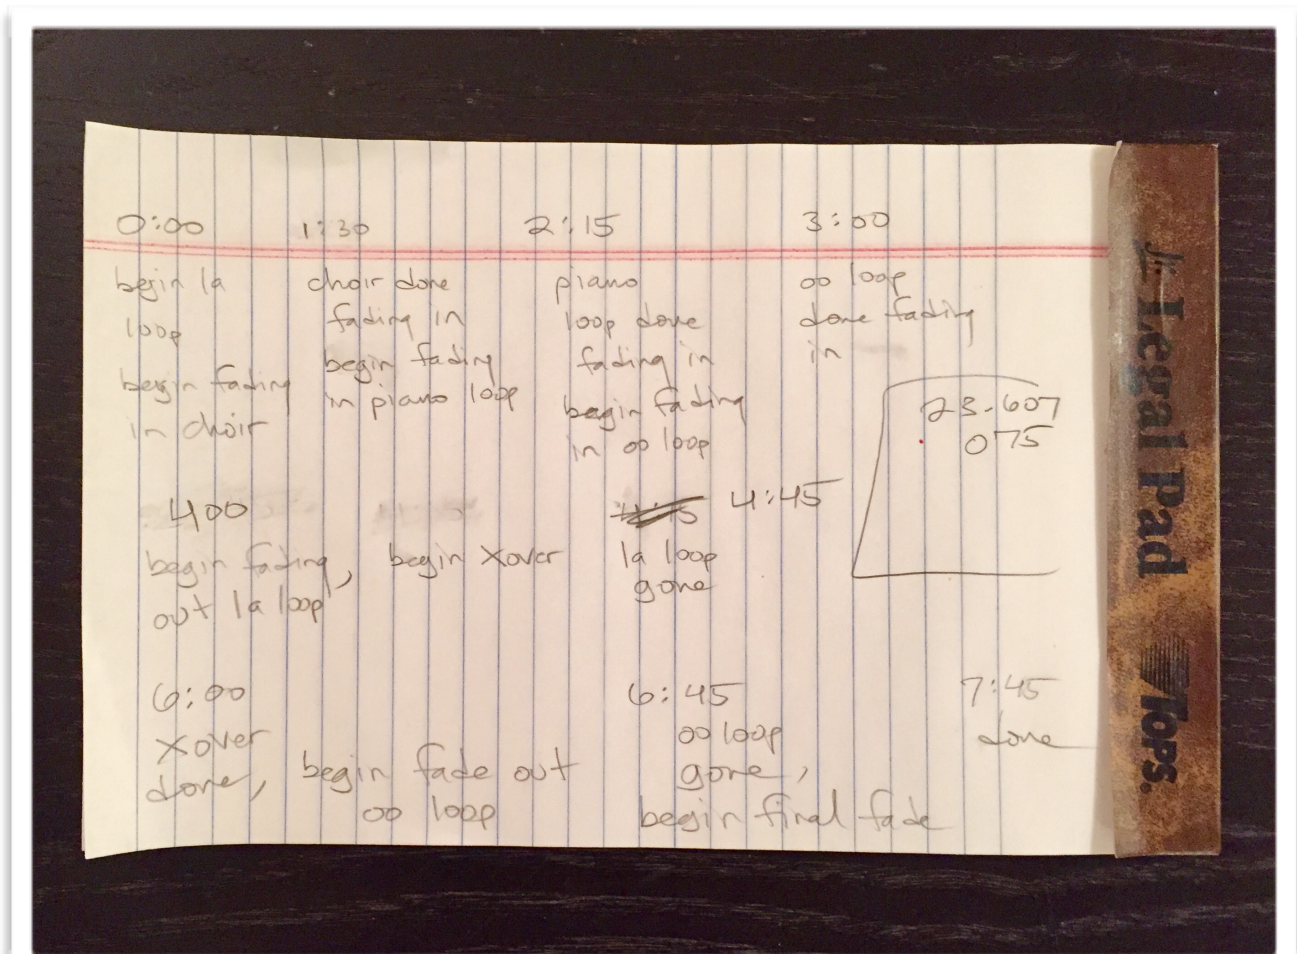 0:00
begin la
loop
begin fading
in choir
1:30
choir done
fading in
begin fading
in piano loop
2:15
piano
loop done
fading in
begin fading
in oo loop
3:00
oo loop
done fading
in
23.607
075
400
begin fading,
out la loop
begin xover
4:45
la loop
gone
6:00
xover
done,
begin fade out
oo loop
6:45
oo loop
gone,
begin final fade
7:45
done
Jr. Legal Pad
TOPS.